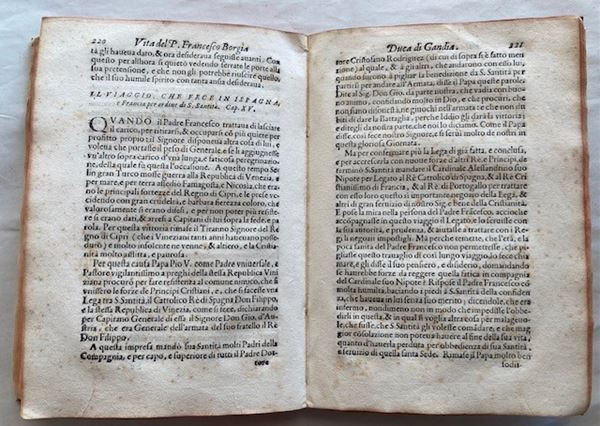 220 Vita del P. Francesco Borgia
tà gli haueua dato, & ch'ora desideraua seguisse auanti. Con
questo per allhora si quietò vedendo serrate le porte alla
sua pretensione, e che non gli potrebbe riuscire quello,
che il suo humile spirito con tanta ansia desideraua.
IL VIAGGIO, CHE FECE IN ISPAGNA,
e Francia per ordine di S. Santità. Cap. XV.
QVANDO il Padre Francesco trattaua di lasciare
il carico, per ritirarsi, & occuparsi cō più quiete per
profitto proprio il Signore disponeua altra cosa di lui, e
voleua che portasse il peso del Generale, e se le aggiungesse
vn'altro sopra carico d'vna lunga, e faticosa peregrinatio
ne, della quale fù questa l'occasione. A questo tempo Seli-
lin gran Turco mosse guerra alla Republica di Venezia, e
per mare, e per terra assediò Famagosta, e Nicosia, che erano
le principali fortezze del Regno di Cipri, e le prese vc-
cidendo con gran crudeltà, e barbara fierezza coloro, che
valorosamente si erano difesi, e per non poter più resiste-
re si erano dati, & arresi a Capitani di lui sopra la fede, e pa-
rola. Per questa vittoria rimase il Tiranno Signore del Re
gno di Cipri (che i Veneziani tanti anni haueuano posse-
duto) e molto insolente ne venne, & altiero, e la Christia-
nità molto afflitta, e paurosa.
Per questa causa Papa Pio V. come Padre vniuersale, e
Pastore vigilantissimo a preghi della stessa Republica Vini
ziana procurò per fare resistenza al comune nimico, che si
vnissero le forze de Principi Cristiani, e, che si facesse vna
Lega trà S. Santità, il Cattolico Rè di Spagna Don Filippo, e
la stessa Republica di Vinezia, come si fece, dichiarando
per Capitano Generale di essa il Signore Don Gio. d'Au-
stria, che era Generale dell'armata del suo fratello il Rè
Don Filippo.
A questa impresa mandò sua Santità molti Padri della
Compagnia, e per capo, e superiore di tutti il Padre Dot-
tore
Duca di Gandia. 221
tore Cristofano Rodriguez (di cui di sopra si è fatto men
zione) al quale, & à gli altri, che andarono con esso lui,
quando furono à pigliar la benedizione da S. Santità per
partire per andare all'Armata, disse il Papa queste parole
Dite al Sig. Don Gio. da parte nostra, che vadia, e combat-
ta di buon animo, confidando molto in Dio, e che procuri, che
non siano disonestà, ne giuochi nell'armata, e che non si sbi
gottisca di dare la Battaglia, perche Iddio gli darà vittoria:
e ditegli da parte nostra, che noi lo diciamo. Come il Papa
disse, così fece nostro Signore, e si serui molto de nostri in
questa gloriosa Giornata.
Ma per conseguire più la Lega di già fatta, e conclusa,
e per accrescerla con nuoue forze d'altri Rè, e Principi, de
terminò S. Santità mandare il Cardinale Alessandrino suo
Nipote per Legato al Rè Cattolico di Spagna, & al Rè Cri
stianissimo di Francia, & al Rè di Portogallo per trattare
con esso loro questo sì importante negozio della Lega, &
altri di gran seruizio di nostro Sig. e bene della Cristianità.
E pose la mira nella persona del Padre Francesco, accioche
accompagnasse in questo viaggio il Legato, e lo seruisse con
la sua autorità, e prudenza, & aiutasse a trattare con i Re-
gi li negozi impostigli. Mà perche temette, che l'età, e la
poca sanità del Padre Francesco non permettesse, che pi-
gliasse questo trauaglio di così lungo viaggio, lo fece chia
mare, e gli disse il suo pensiero, e disiderio, domandando
se hauerebbe forza da reggere questa fatica in compagnia
del Cardinale suo Nipote? Rispose il Padre Francesco cō
molta humiltà, baciando i piedi à S. Santità della confidēza,
che haueua in lui senza suo merito; dicendole, che era
infermo, nondimeno non in modo che impedisse l'obbe-
dirli in questa, & in qual si voglia altra cosa per malageuo-
le, che fusse, che S. Santità gli volesse comādare, e che mag-
gior consolazione non poteua hauere al fine della sua vita,
quanto d'hauerla perduta per vbbidienza di sua Santità,
e seruizio di quella santa Sede. Rimase il Papa molto ben
sodis-